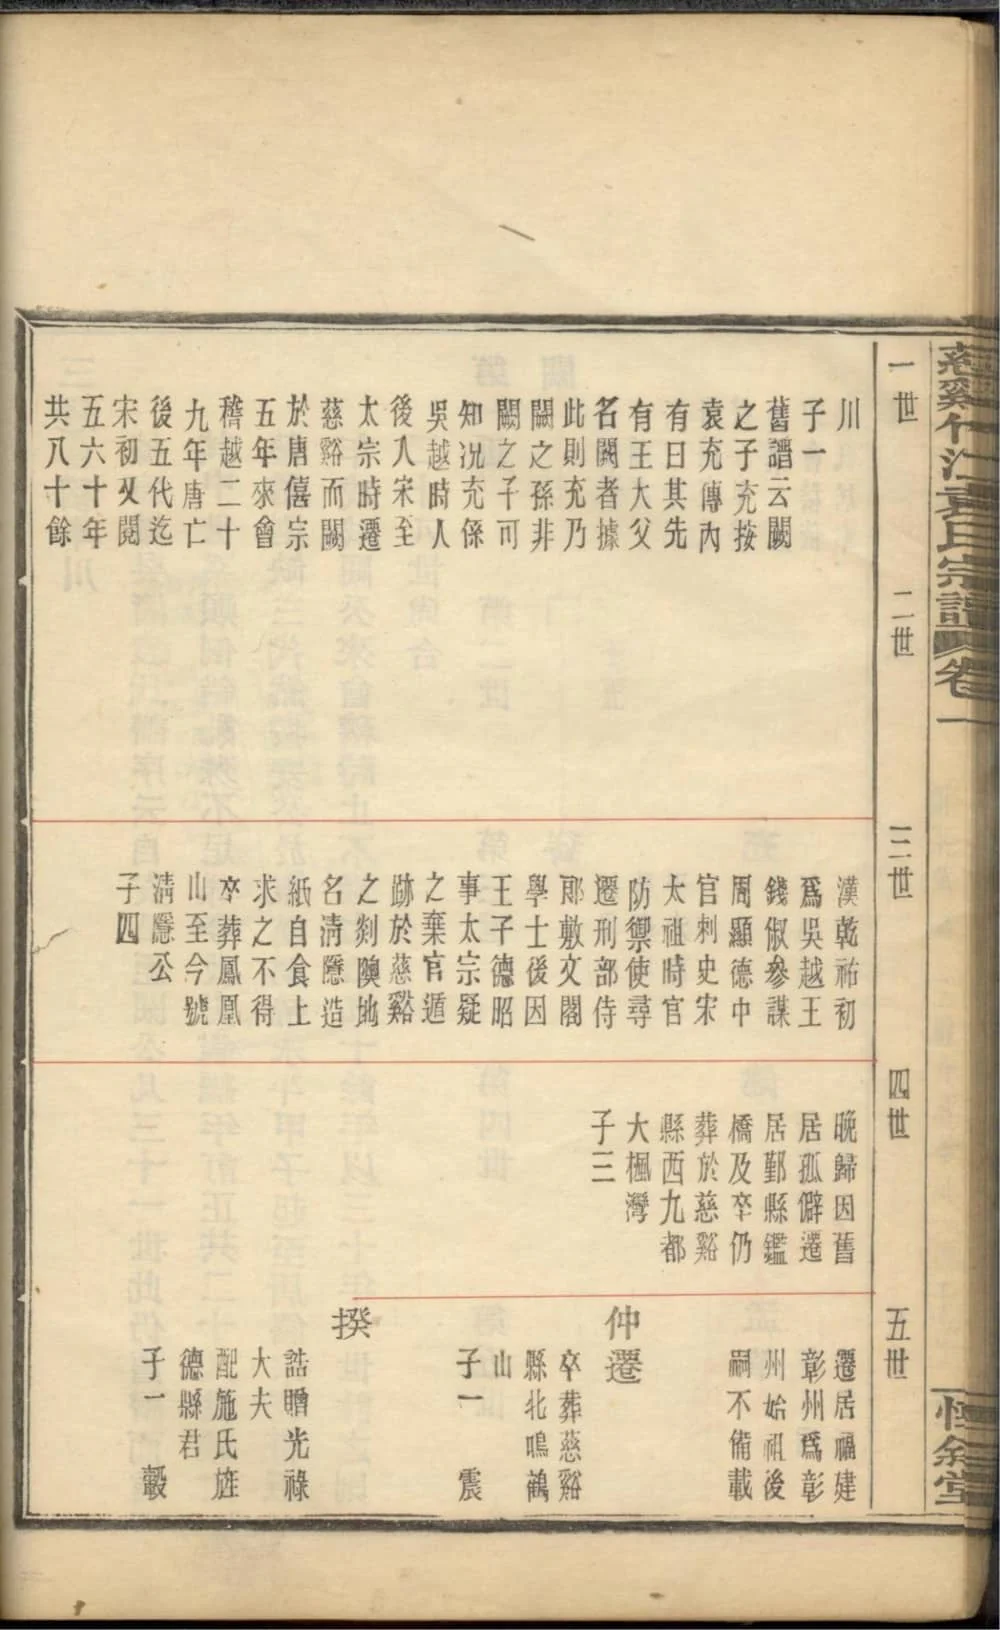 慈谿竹江袁氏宗譜 卷一
恒敘堂
一世
二世
三世
四世
五世
川
子一
舊譜云闕
之子充按
袁充傳內
有曰其先
有王大父
名闕者據
此則充乃
闕之孫非
闕之子可
知況充係
吳越時人
後入宋至
太宗時遷
慈谿而闕
於唐僖宗
五年來會
稽越二十
九年唐亡
後五代迄
宋初又閱
五六十年
共八十餘
漢乾祐初
爲吳越王
錢俶參謀
周顯德中
官刺史宋
太祖時官
防禦使尋
遷刑部侍
郎敷文閣
學士後因
王子德昭
事太宗疑
之棄官遁
跡於慈谿
之剡隩地
名淸隱造
紙自食上
求之不得
卒葬鳳凰
山至今號
淸隱公
子四
晚歸因舊
居孤僻遷
居鄞縣鑑
橋及卒仍
葬於慈谿
縣西九都
大楓灣
子三
遷居福建
彰州爲彰
州始祖後
嗣不備載
仲遷
卒葬慈谿
縣北鳴鶴
山
子一 震
揆
誥贈光祿
大夫
配施氏旌
德縣君
子一 轂